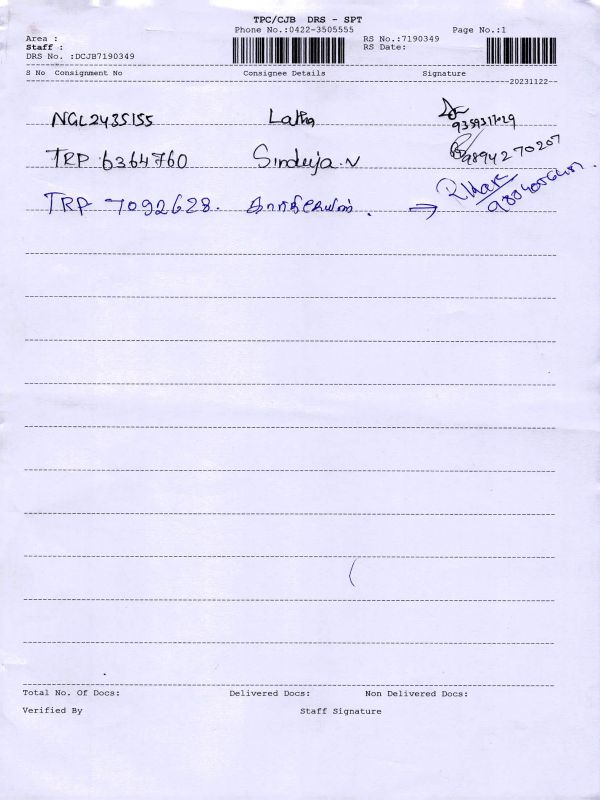 TPC/CJB DRS - SPT
Phone No.:0422-3505555
Page No.:1
Area :
RS No.:7190349
Staff :
RS Date:
DRS No. :DCJB7190349
S No Consignment No Consignee Details Signature
20231122
NGL2435155 Latha
TRP 6364760 Sinduja.V 9894270207
TRP 7092628.
Total No. Of Docs: Delivered Docs: Non Delivered Docs:
Verified By Staff Signature